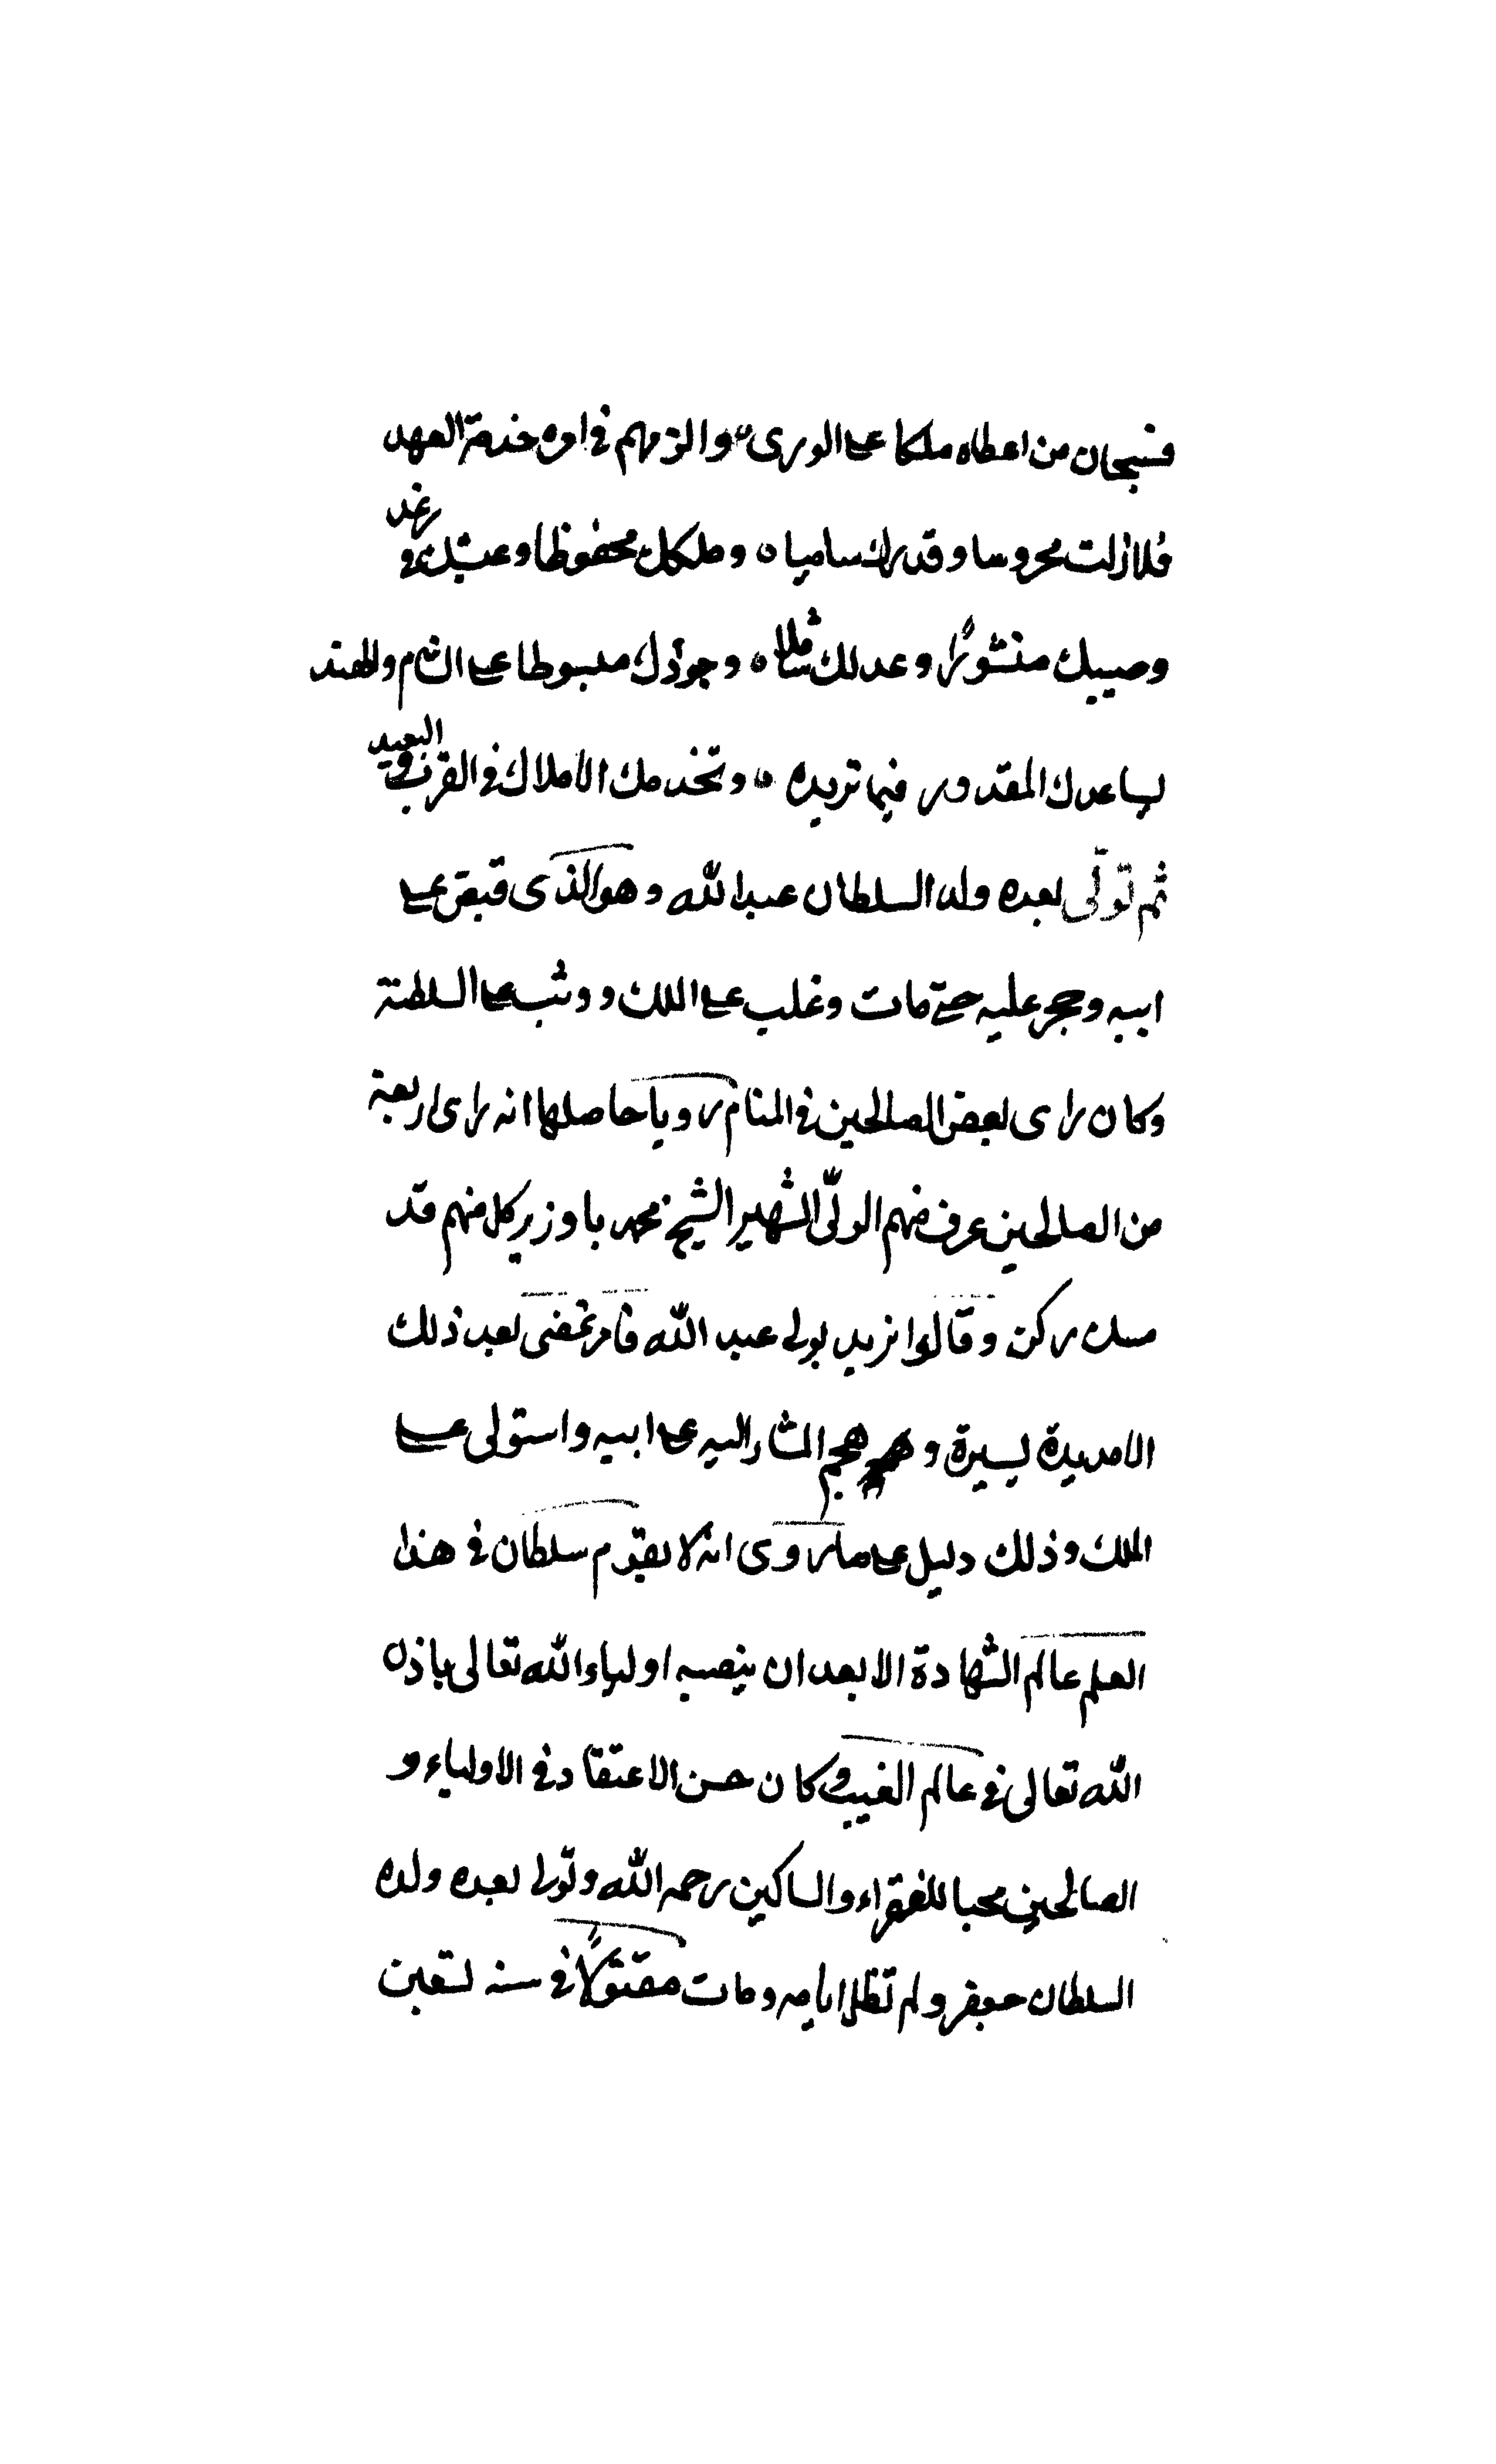 فسبحان من اعطاه ملكا على الورى والزمهم في امره خدمة العهد
فلازلت محروسا وقدرك ساميا ه وملكك محفوظا وعيشك في رغد
وصيبك منشورا وعدلك شاملا ه وجودك مبسوطا على الشام والهند
يساعدك المقدور فيما تريده ه وتخدمك الاملاك في القرب والبعيد
ثم تولّى بعده ولده السلطان عبدالله وهو الذي قبض على
ابيه وحجر عليه حتى مات وغلب على الملك ووثب على السلطنة
وكان راى بعض الصالحين في المنام رويا حاصلها انه راى اربعة
من الصالحين عرف منهم الوليّ الشهير الشيخ محمد باوزير كل منهم قد
مسك ركن وقالوا نريد نولي عبد الله فلم تمضى بعد ذلك
الا مديدة يسيرة وهجم المشار اليه على ابيه واستولى على
الملك وذلك دليل على ما روى انه لا يقوم سلطان في هذا
العلم عالم الشهادة الا بعد ان ينصبه اولياء الله تعالى باذن
الله تعالى في عالم الغيب وكان حسن الاعتقاد في الاولياء و
الصالحين محبا للفقراء والمساكين رحمه الله وتولى بعده ولده
السلطان جعفر ولم تطل ايامه ومات مقتولاً في سنه تسعين